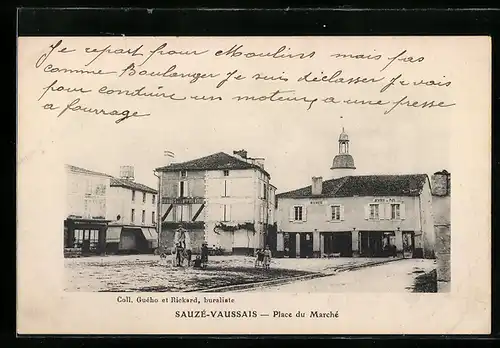 Je repart pour Moulins mais pas
comme Boulanger je suis déclassé je vais
pour conduire un moteur, a une presse
a fourrage
Coll. Guého et Rickard, buraliste
SAUZÉ-VAUSSAIS — Place du Marché